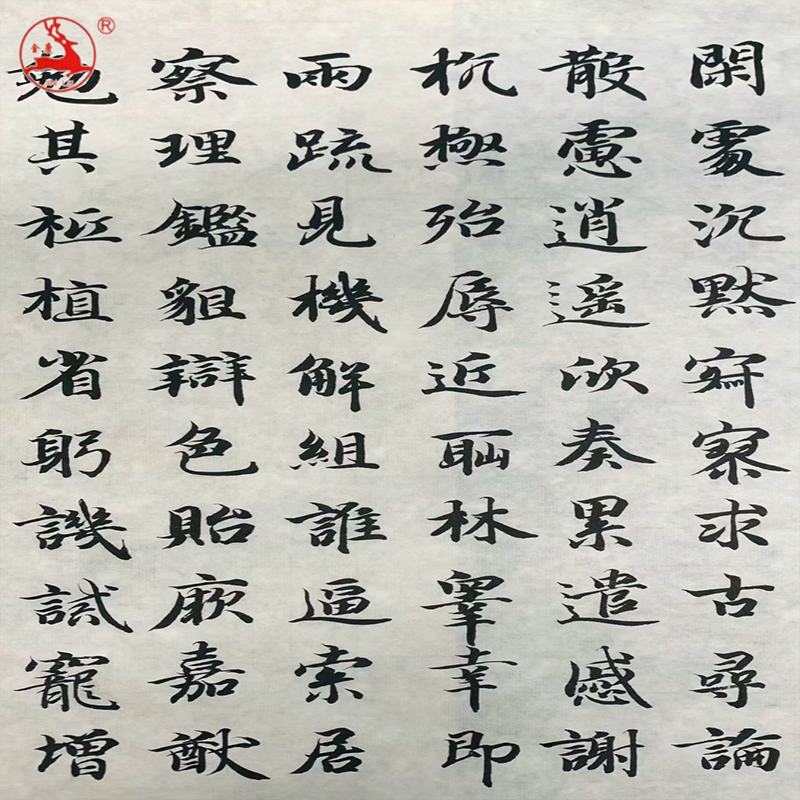 閑處沉默寂寥求古尋論
散慮逍遙欣奏累遣慼謝
抗極殆辱近耻林皋幸即
兩疏見機解組誰逼索居
察理鑑貌辯色貽厥嘉猷
勉其祗植省躬譏誡寵增
金鹿
®